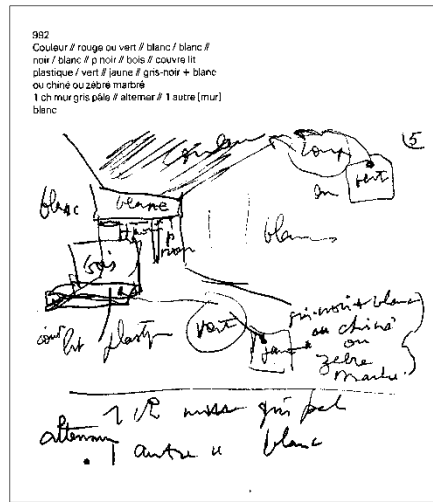 992
Couleur // rouge ou vert // blanc / blanc //
noir / blanc // p noir // bois // couvre lit
plastique / vert // jaune // gris-noir + blanc
ou chiné ou zébré marbré
1 ch mur gris pâle // alterner // 1 autre [mur]
blanc
couleur
rouge
5
ou
vert
blanc
blanc
noir
p
noir
blanc
bois
couv
lit
plastiq
vert
jaune
gris-noir + blanc
ou chiné
ou
zébré
marbré
1 ch mur gris pal
alterner
1 autre u blanc